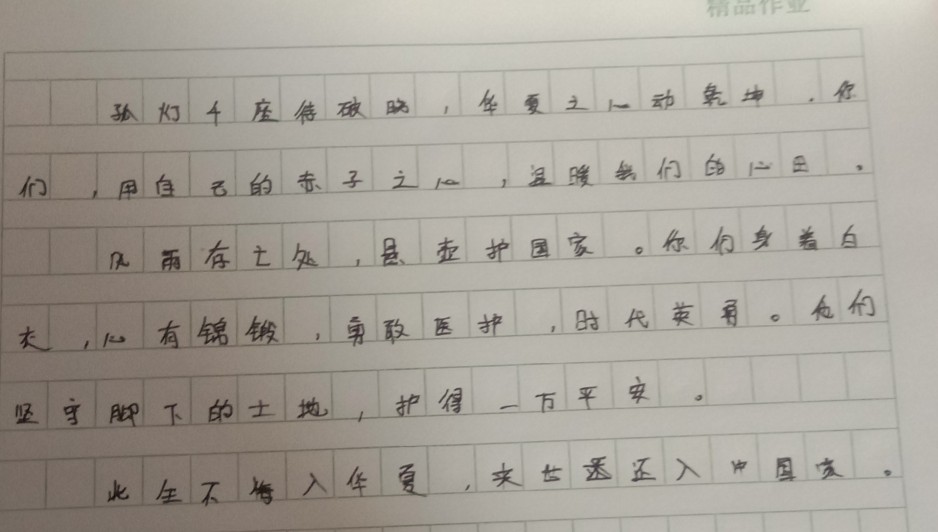 精品作业
孤灯千座待破晓，华夏之心动乾坤．你
们，用自己的赤子之心，温暖我们的心田。
风雨存亡处，悬壶护国家。你们身着白
衣，心有锦缎，勇敢医护，时代英勇。他们
坚守脚下的土地，护得一万平安。
此生不悔入华夏，来世愿还入中国家。